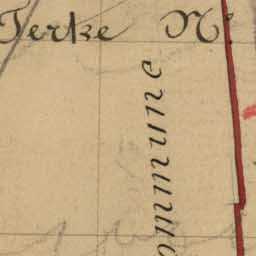 Terke Nr.
ommune